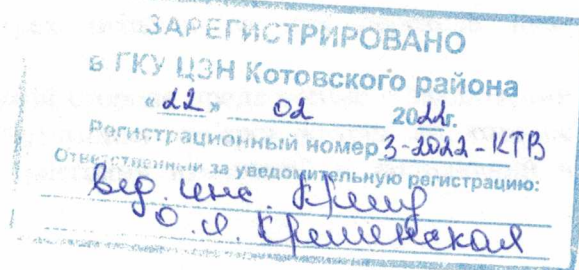 ЗАРЕГИСТРИРОВАНО
в ГКУ ЦЗН Котовского района
«22» 02 2022г.
Регистрационный номер 3-2022-КТВ
Ответственный за уведомительную регистрацию:
вед. инс.
О.Я. Кременская